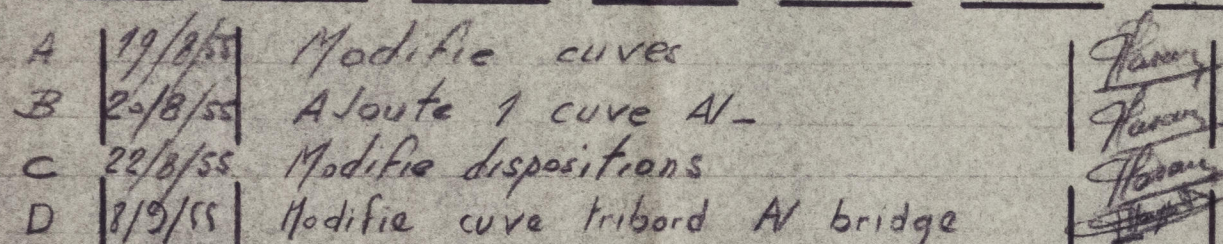 A 19/8/55 Modifie cuves
B 20/8/55 AJoute 1 cuve A/_
C 22/8/55 Modifie dispositions
D 8/9/55 Modifie cuve tribord A/ bridge